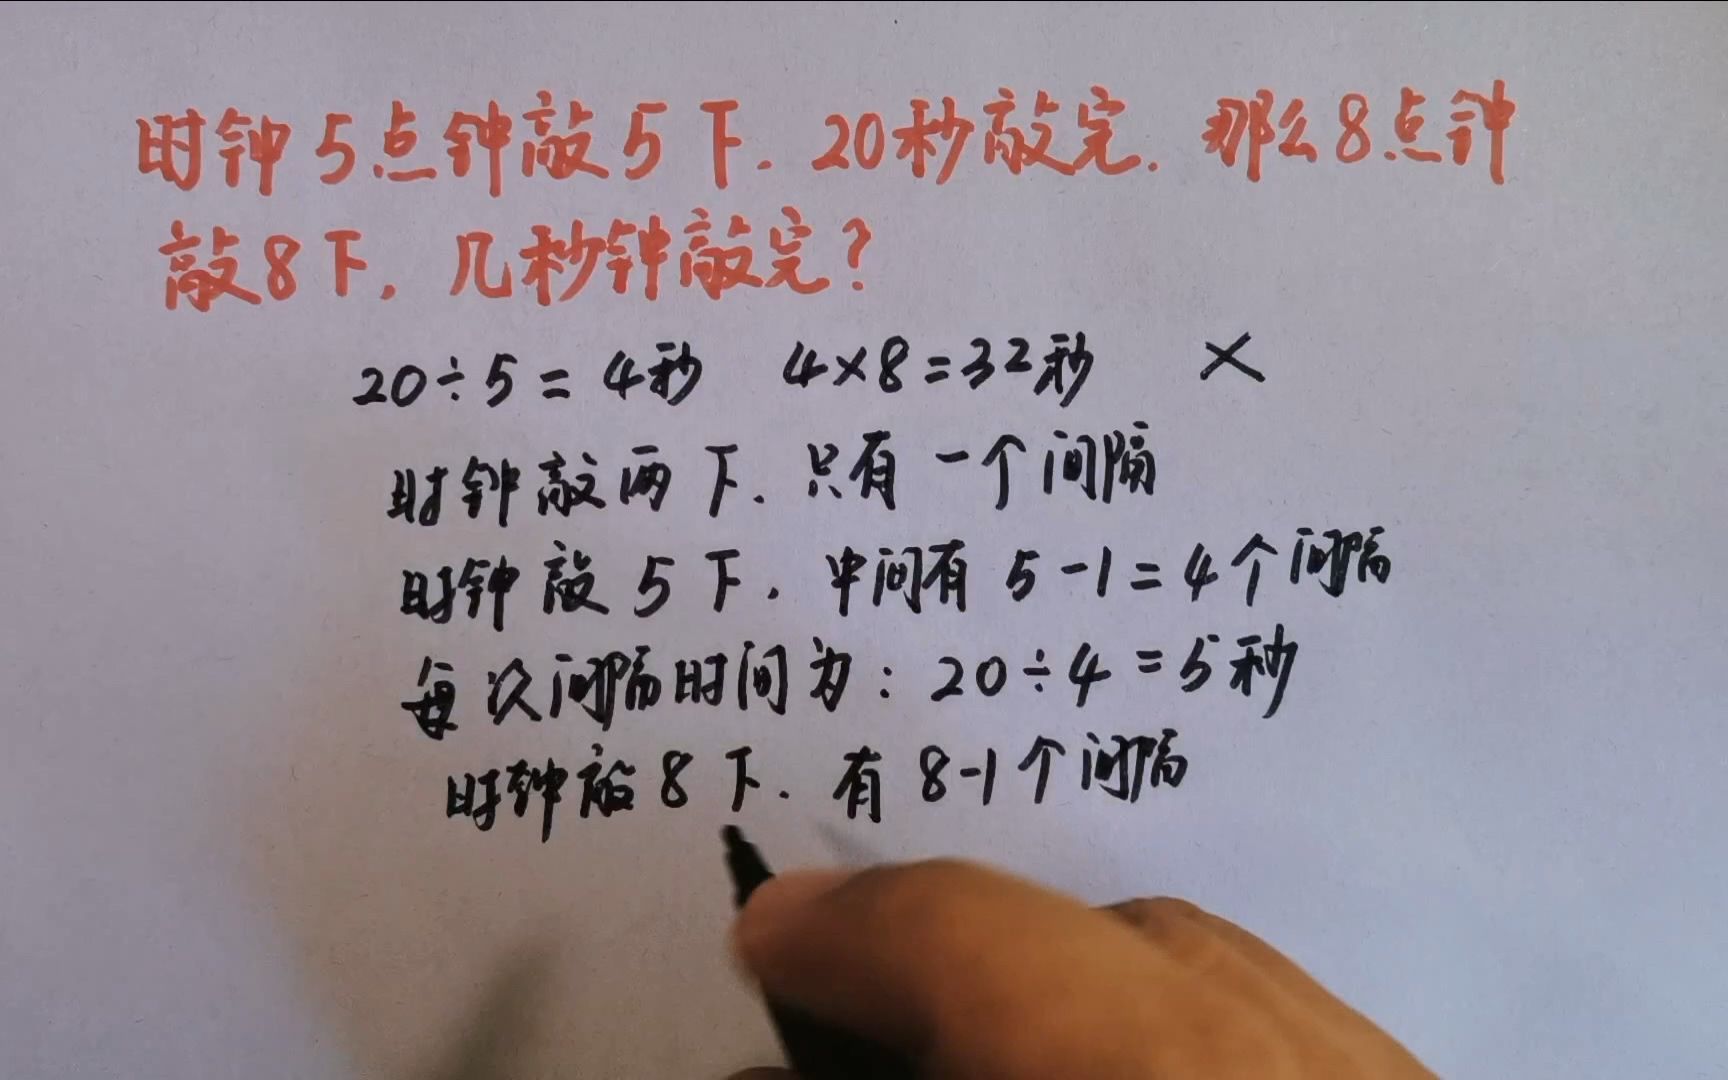 时钟5点钟敲5下.20秒敲完.那么8点钟
敲8下,几秒钟敲完?
20÷5=4秒 4×8=32秒 ×
时钟敲两下.只有一个间隔
时钟敲5下,中间有5-1=4个间隔
每次间隔时间为:20÷4=5秒
时钟敲8下.有8-1个间隔